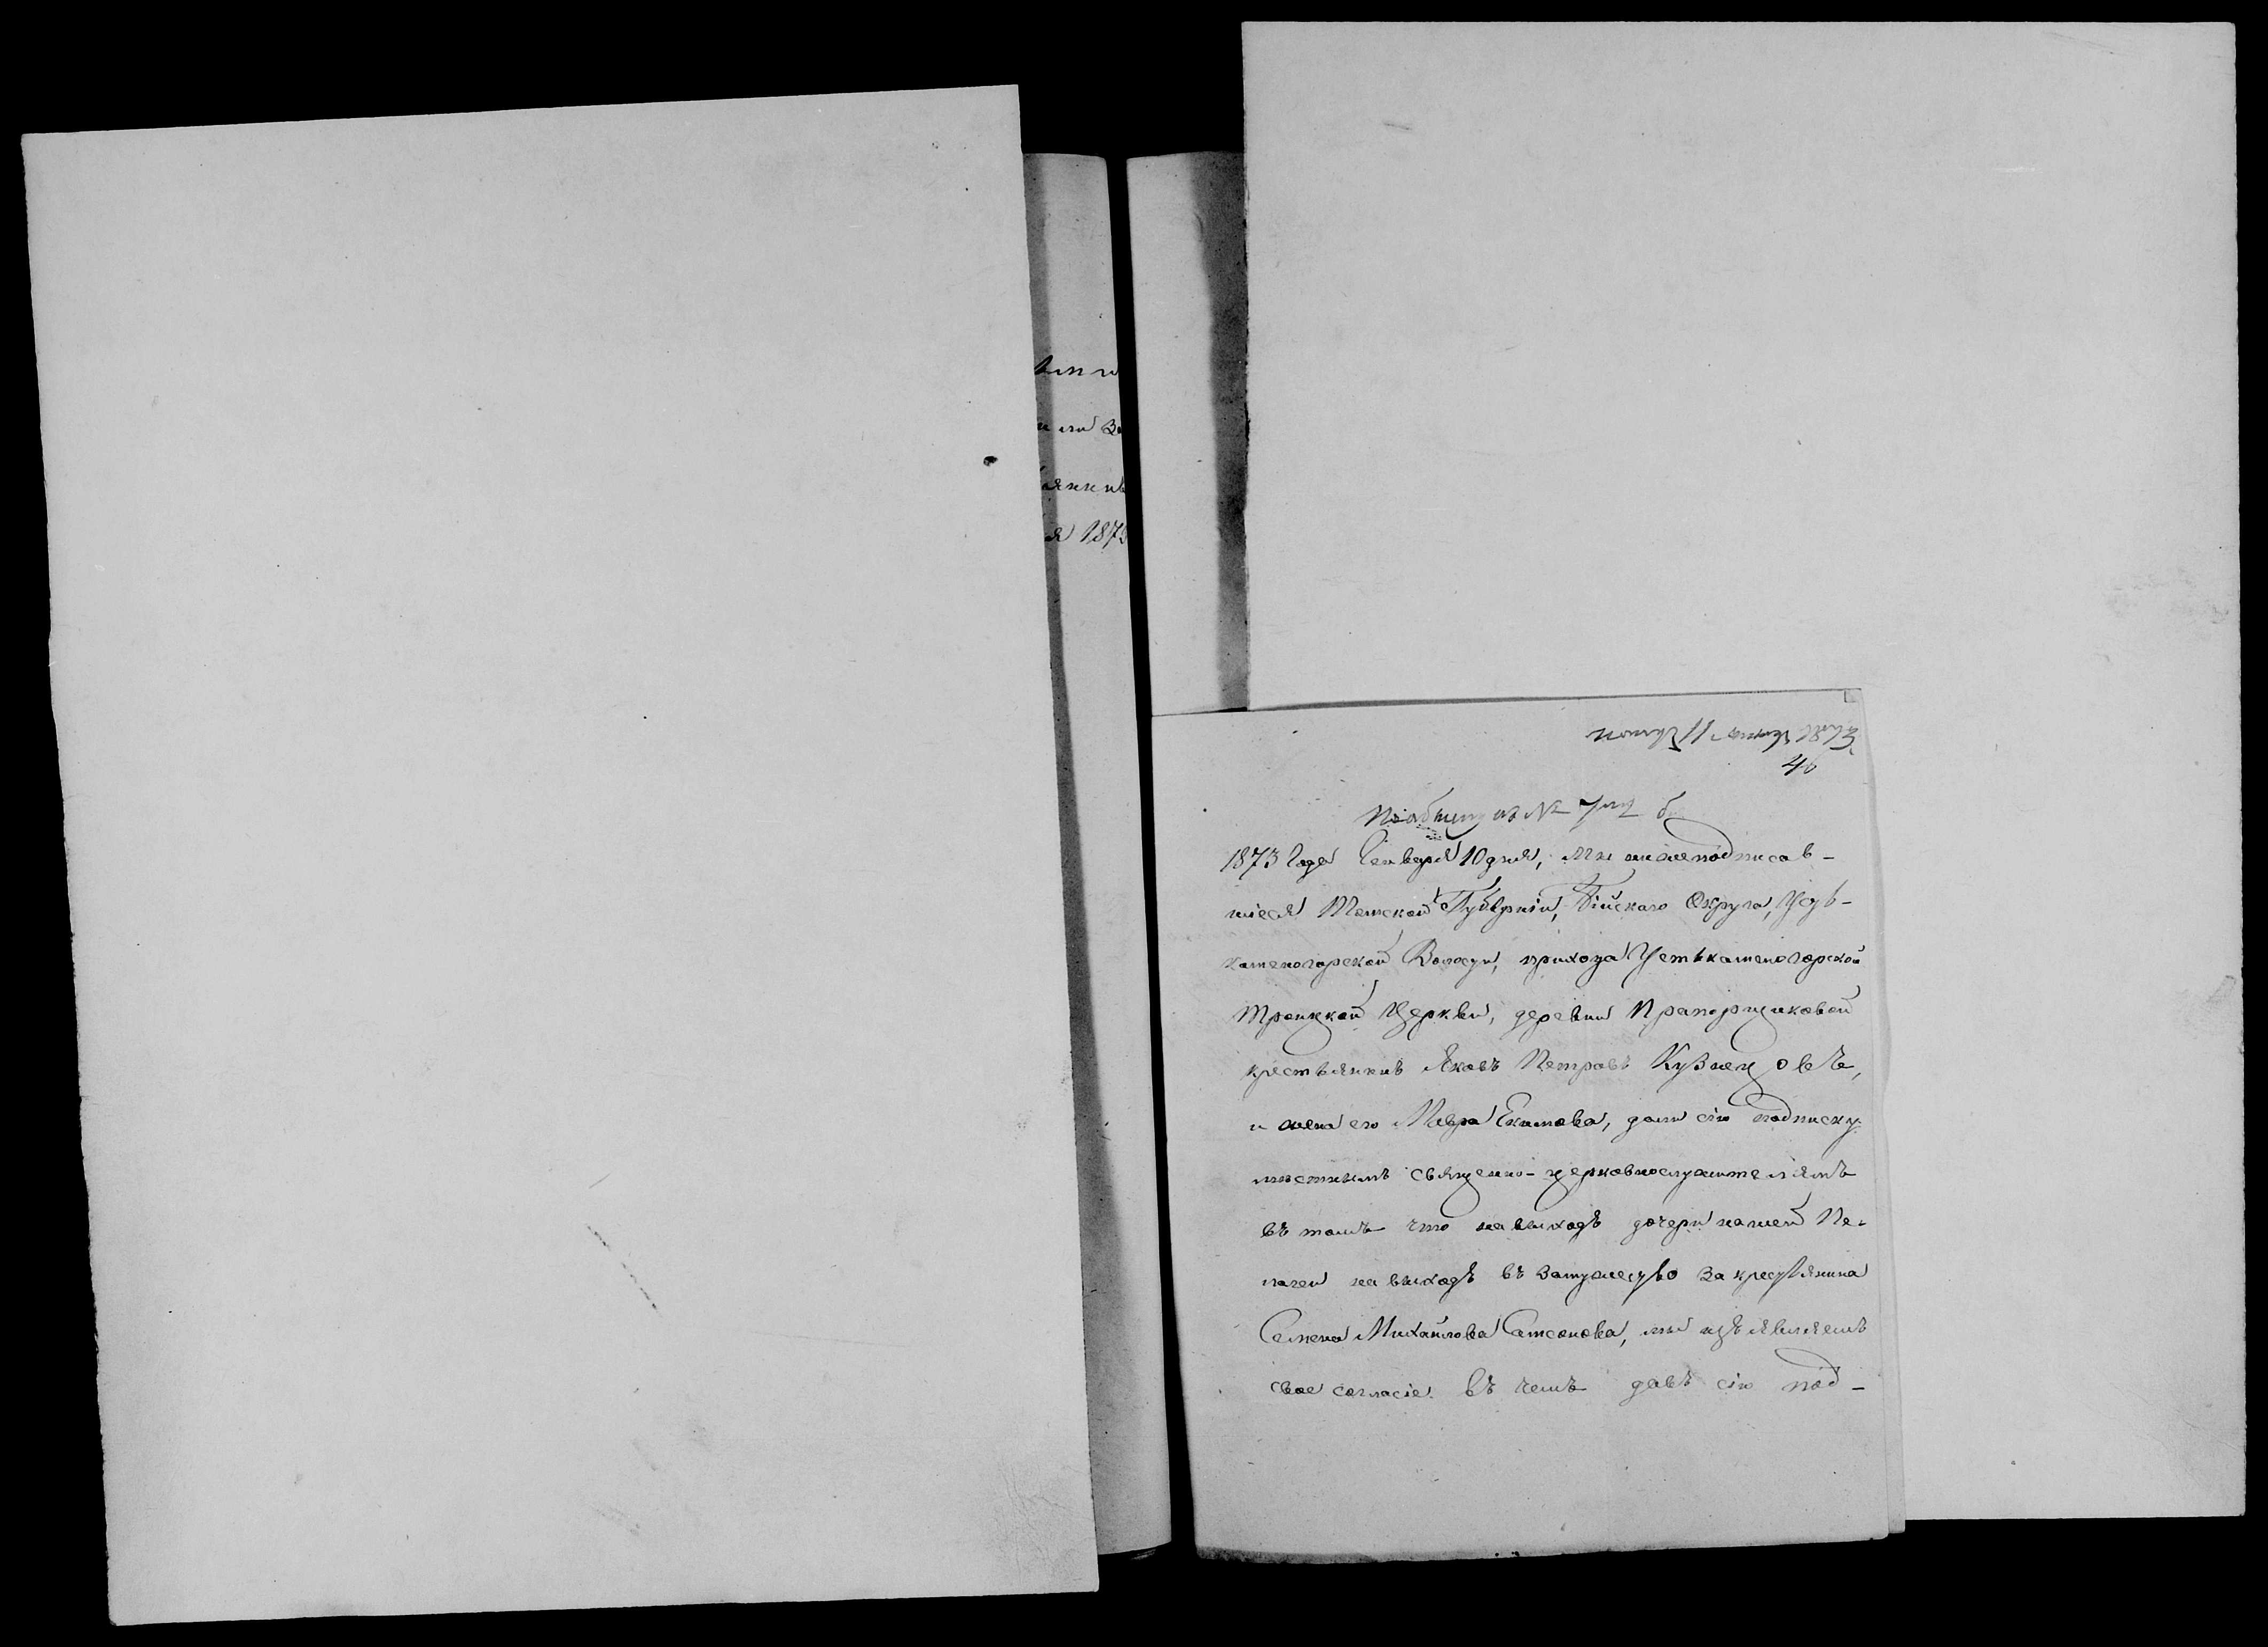 я 1873
46
1873 Года Генваря 10 дня, мы нижеподписав-
шіеся Томской Губерніи, Бійскаго Округа, Усть-
каменогорской Волости, прихода Устькаменогорской
Троицкой Церкви, деревни Прапорщиковой
крестьянинъ Яковъ Петровъ Кузнецовъ,
и жена его Мавра Екимова, дали сію подписку
мѣстнымъ священно-церковнослужителямъ
въ томъ что на выходъ дочери нашей Пе-
лагеи на выходъ въ замужество за крестьянина
Семена Михайлова Самсонова, мы изъявляемъ
свое согласіе. Въ чемъ давъ сію под-